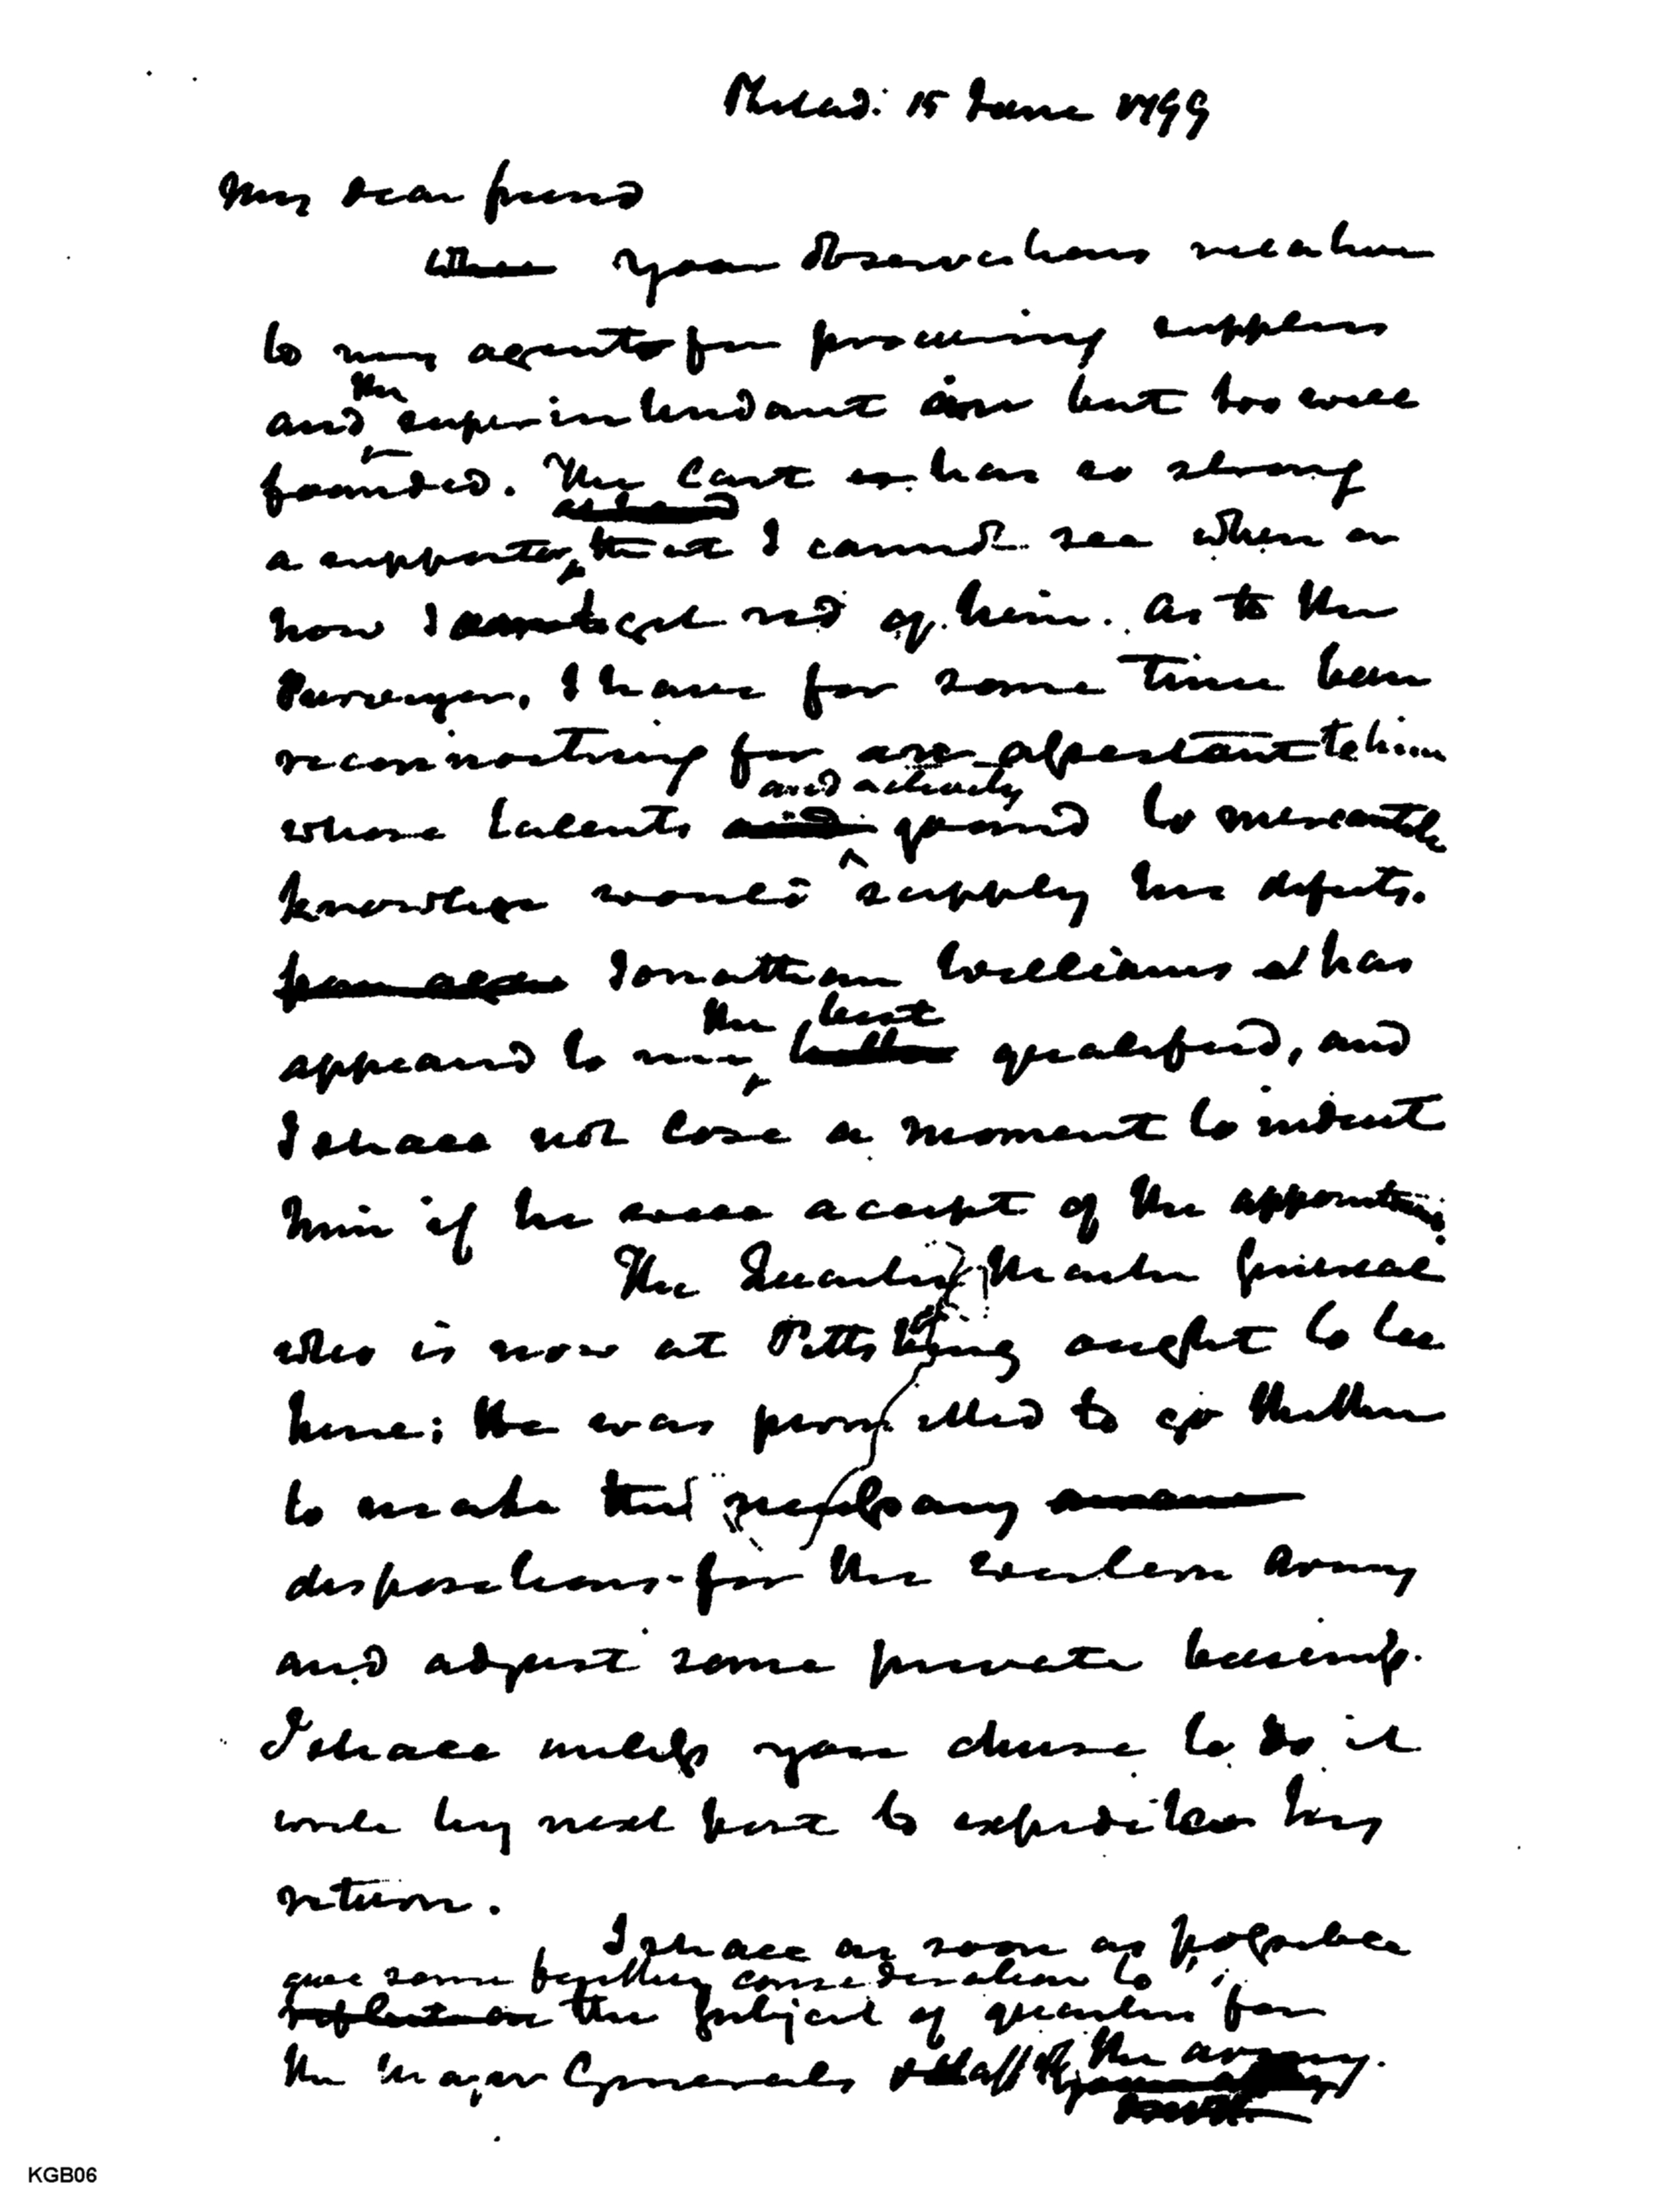 Philad: 15 June 1799
My dear friend
your observations relative
to my agents for procuring supplies
and the superintendant are but too well
founded. The last has so strong
a supporter, that I cannot see when or
how I get rid of him. As to the
Purveyor, I have for some time been
reconnoitring for an assistant to him
whose talents and activity joined to mercantile
knowlege would supply his defects.
Jonathan Williams has
appeared to me the best qualified, and
I shall not lose a moment to invest
him if he will accept of the appointment
The Quarter Master General
who is now at Pittsburg ought to be
here: He was permitted to go thither
to make the necessary
dispositions for the western army
and adjust some private business.
I shall unless you chuse to do it
write by next post to expedite his
return.
I shall as soon as possible
give some further consideration to
the subject of quarters for
the Major Generals & staff of the army.
KGB06